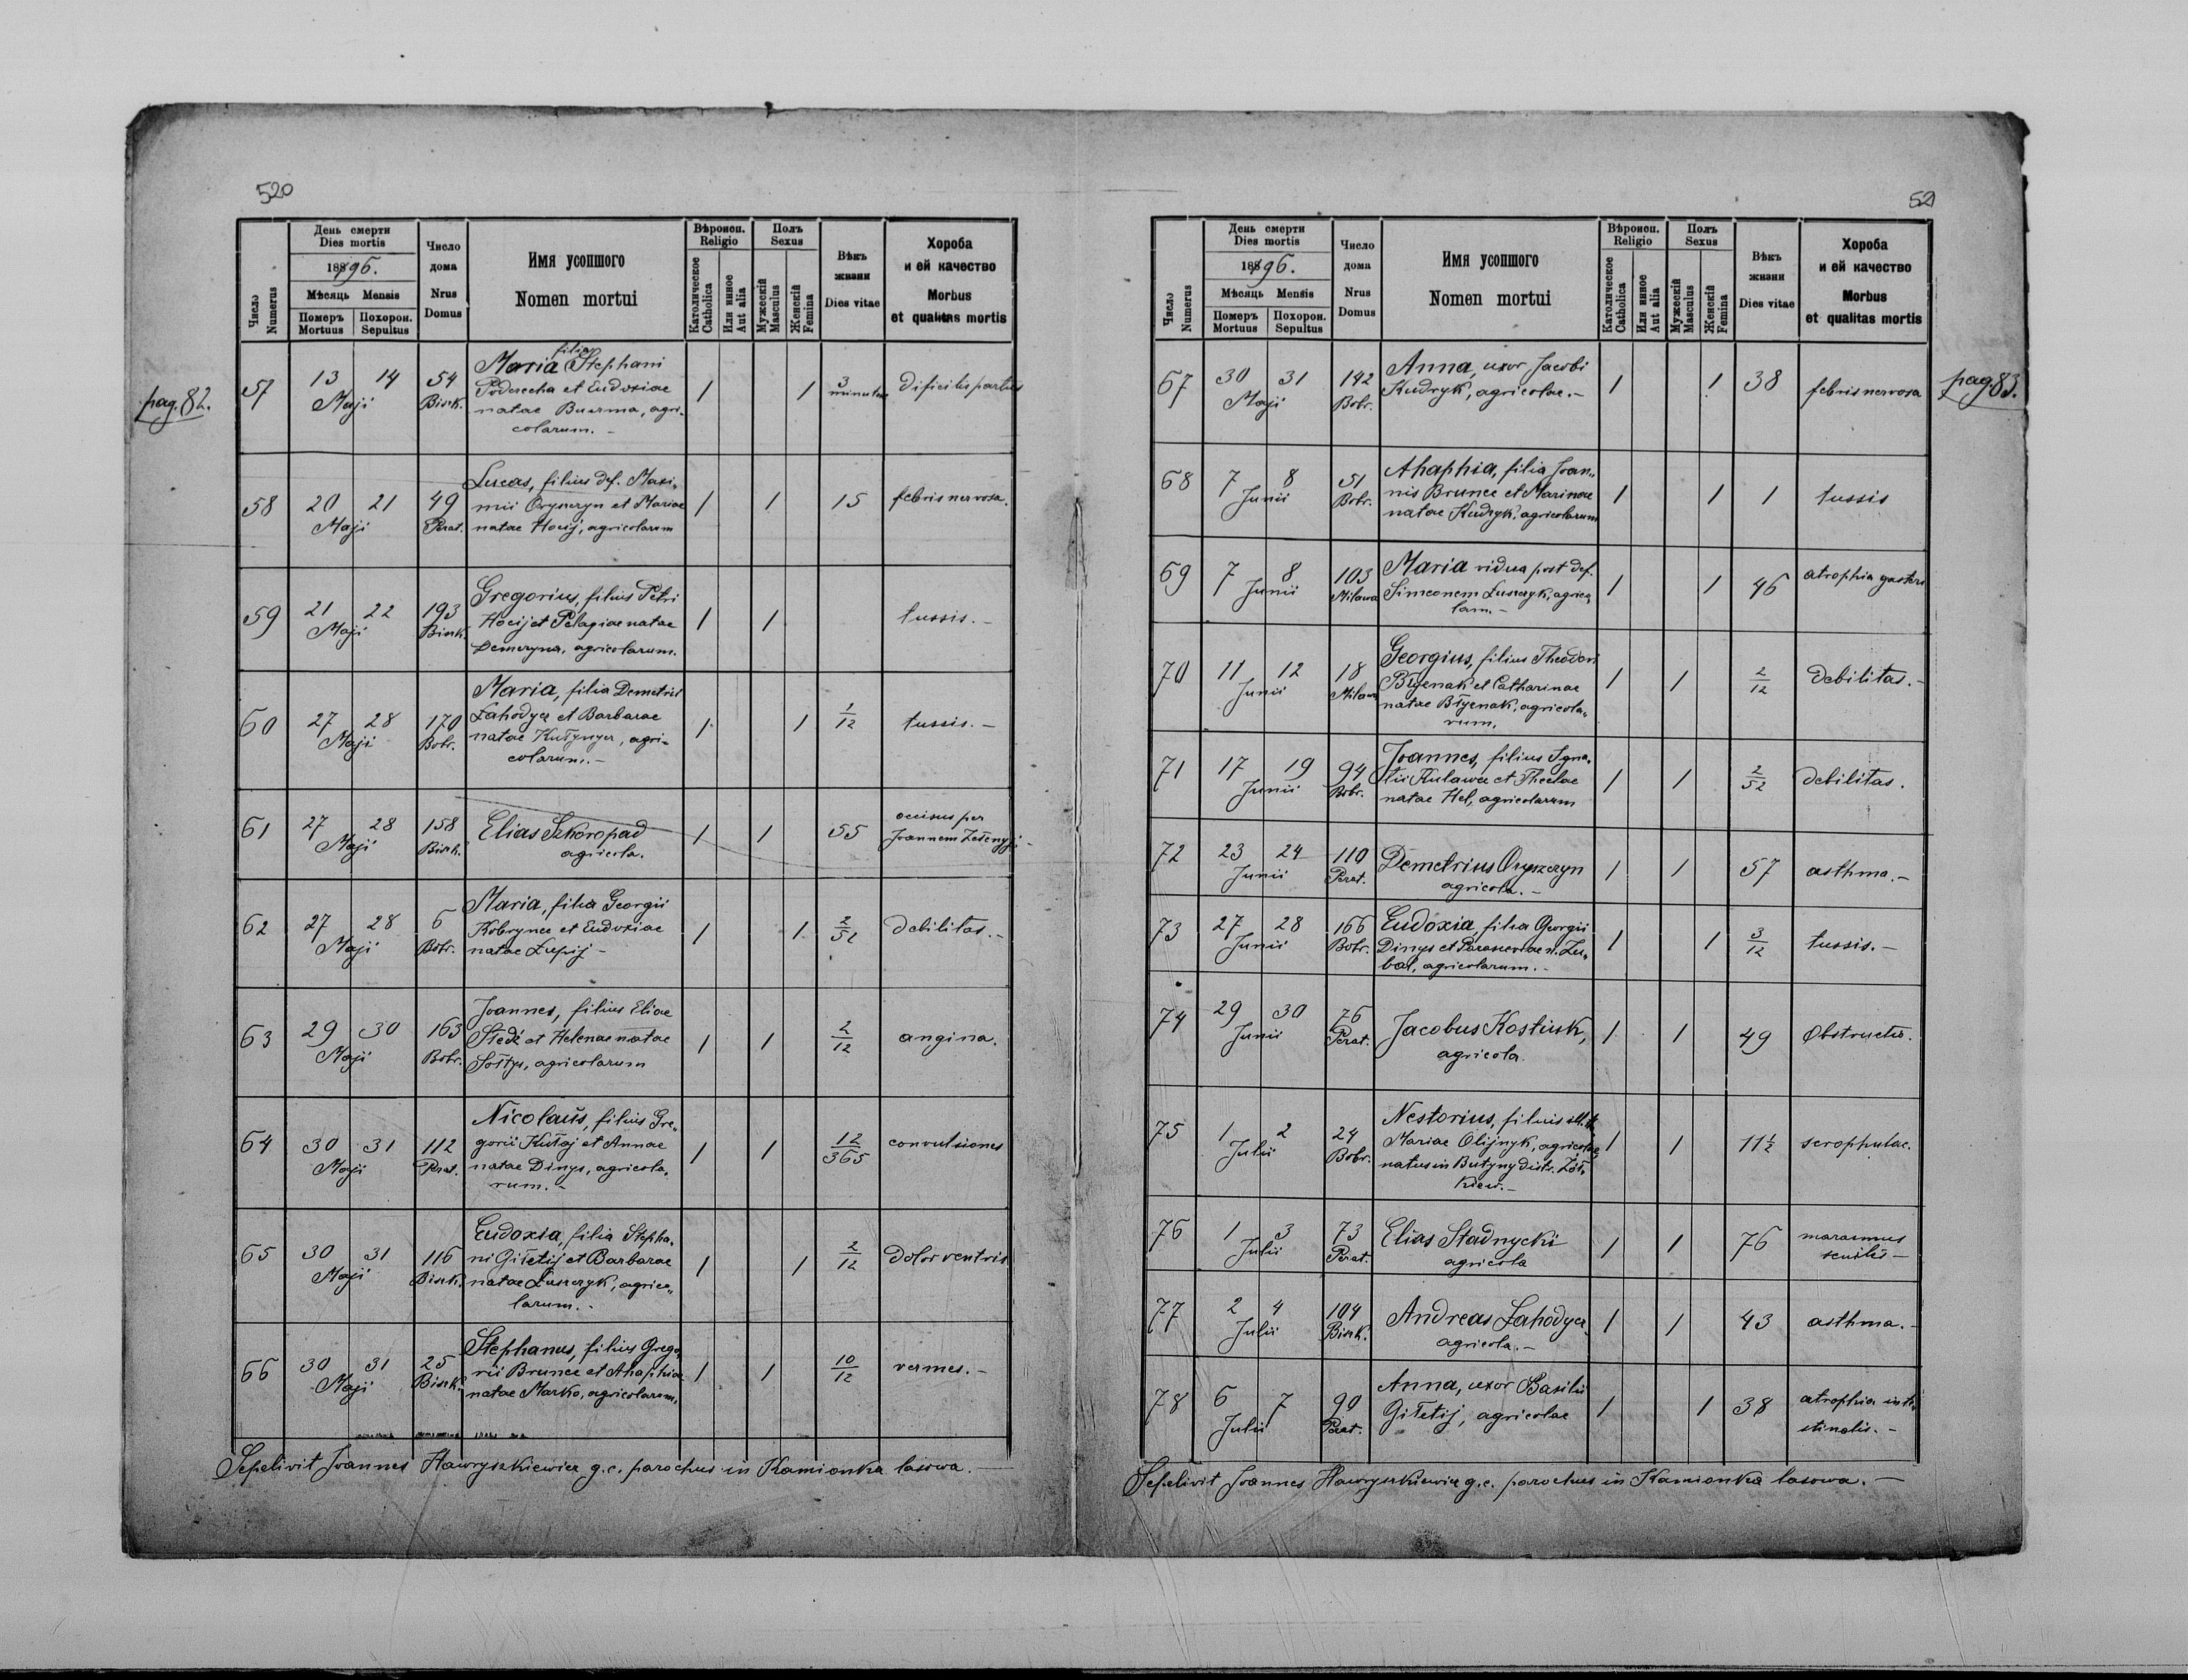 520
pag. 82.
Число Numerus
День смерти
Dies mortis
1896.
Мѣсяць Mensis
Померъ Mortuus
Похорон. Sepultus
Число дома
Nrus Domus
Имя усопшого
Nomen mortui
Вѣроисп. Religio
Католическое Catholica
Или инное Aut alia
Полъ Sexus
Мужескій Masculus
Женскій Femina
Вѣкъ жизни
Dies vitae
Хороба и ей качество
Morbus et qualitas mortis
57 13 14 Maji 54 Bisk.
filia
Maria Stephani
et Eudoxiae
natae Buczma, agri-
colarum. -
1 1 3 minuten dificilis partus
58 20 21 Maji 49 Perat.
Lucas, filius def. Maxi-
mii Oryszczyn et Mariae
natae Hocij, agricolarum
1 1 15 febris nervosa.
59 21 22 Maji 193 Bisk.
Gregorius, filius Petri
Hocij et Pelagiae natae
agricolarum.
1 1 tussis. -
60 27 28 Maji 170 Bobr.
Maria, filia Demetrii
Lahodycz et Barbarae
natae agri-
colarum. -
1 1 1/12 tussis. -
61 27 28 Maji 158 Bisk.
Elias Szkoropad
agricola.
1 1 55 occisus per
Joannem
62 27 28 Maji 6 Bobr.
Maria, filia Georgii
Kobrynce et Eudoxiae
natae -
1 1 2/52 debilitas. -
63 29 30 Maji 163 Bobr.
Joannes, filius Eliae
et Helenae natae
Sołtys, agricolarum
1 1 2/12 angina.
64 30 31 Maji 112 Perat.
Nicolaus, filius Gre-
gorii Kułaj et Annae
natae Dinys, agricola-
rum. -
1 1 12/365 convulsiones
65 30 31 Maji 116 Bisk.
Eudoxia, filia Stepha-
ni Giłetij et Barbarae
natae Łuszczyk, agrico-
larum. -
1 1 2/12 dolor ventris
66 30 31 Maji 25 Bisk.
Stephanus, filius Grego-
rii Brunce et Ahaphiae
natae Marko, agricolarum.
1 1 10/12 vermes. -
Sepelivit Joannes Hawryszkiewicz g. c. parochus in Kamionka lasowa.
52
pag. 83.
Число Numerus
День смерти
Dies mortis
1896.
Мѣсяць Mensis
Померъ Mortuus
Похорон. Sepultus
Число дома
Nrus Domus
Имя усопшого
Nomen mortui
Вѣроисп. Religio
Католическое Catholica
Или инное Aut alia
Полъ Sexus
Мужескій Masculus
Женскій Femina
Вѣкъ жизни
Dies vitae
Хороба и ей качество
Morbus et qualitas mortis
67 30 31 Maji 142 Bobr.
Anna, uxor Jacobi
Kudryk, agricolae. -
1 1 38 febris nervosa
68 7 8 Junii 51 Bobr.
Ahaphia, filia Joan-
nis Brunce et Marinae
natae Kudryk, agricolarum
1 1 1 tussis
69 7 8 Junii 103 Milawa
Maria vidua post def.
Simeonem Łuszczyk, agrico-
lam. -
1 1 46 atrophia
70 11 12 Junii 18 Milawa
Georgius, filius Theodori
Błyenak et Catharinae
natae Błyenak, agricola-
rum.
1 1 2/12 debilitas. -
71 17 19 Junii 94 Bobr.
Joannes, filius Igna-
tii Kulawec et Theclae
natae Hel, agricolarum
1 1 2/52 debilitas.
72 23 24 Junii 110 Perat.
Demetrius Oryszczyn
agricola. -
1 1 57 asthma. -
73 27 28 Junii 166 Bobr.
Eudoxia, filia Georgii
Dinys et Parasceviae n. Zu-
bal, agricolarum. -
1 1 3/12 tussis. -
74 29 30 Junii 76 Perat.
Jacobus Kostiuk,
agricola.
1 1 49 Obstructio.
75 1 2 Julii 24 Bobr.
Nestorius, filius
Mariae Olijnyk, agricolae,
natus in Butyny distr. Żół-
kiew. -
1 1 11½ scrophulae.
76 1 3 Julii 73 Perat.
Elias Stadnycki
agricola
1 1 76 marasmus
senilis -
77 2 4 Julii 104 Bisk.
Andreas Lahodycz
agricola. -
1 1 43 asthma. -
78 6 7 Julii 90 Perat.
Anna, uxor Basilii
Giłetij, agricolae
1 1 38 atrophia inte-
stinalis. -
Sepelivit Joannes Hawryszkiewicz g. c. parochus in Kamionka lasowa. -